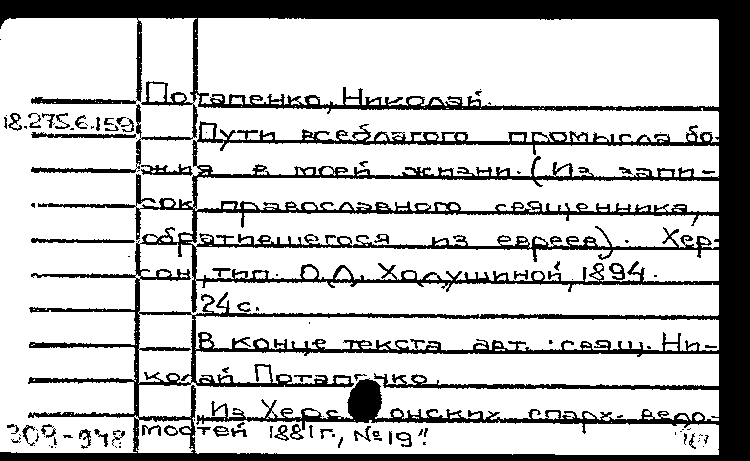 Потапенко, Николай.
18.275.6.159
Пути всеблагого промысла бо-
жия в моей жизни. (Из запи-
сок православного священника,
обратившегося из евреев). Хер-
сон, тип. О.Д. Ходушиной, 1894.
24 с.
В конце текста авт.: свящ. Ни-
колай Потапенко.
„Из Херсонских епарх. ведо-
мостей 1881 г., № 19"
309-948